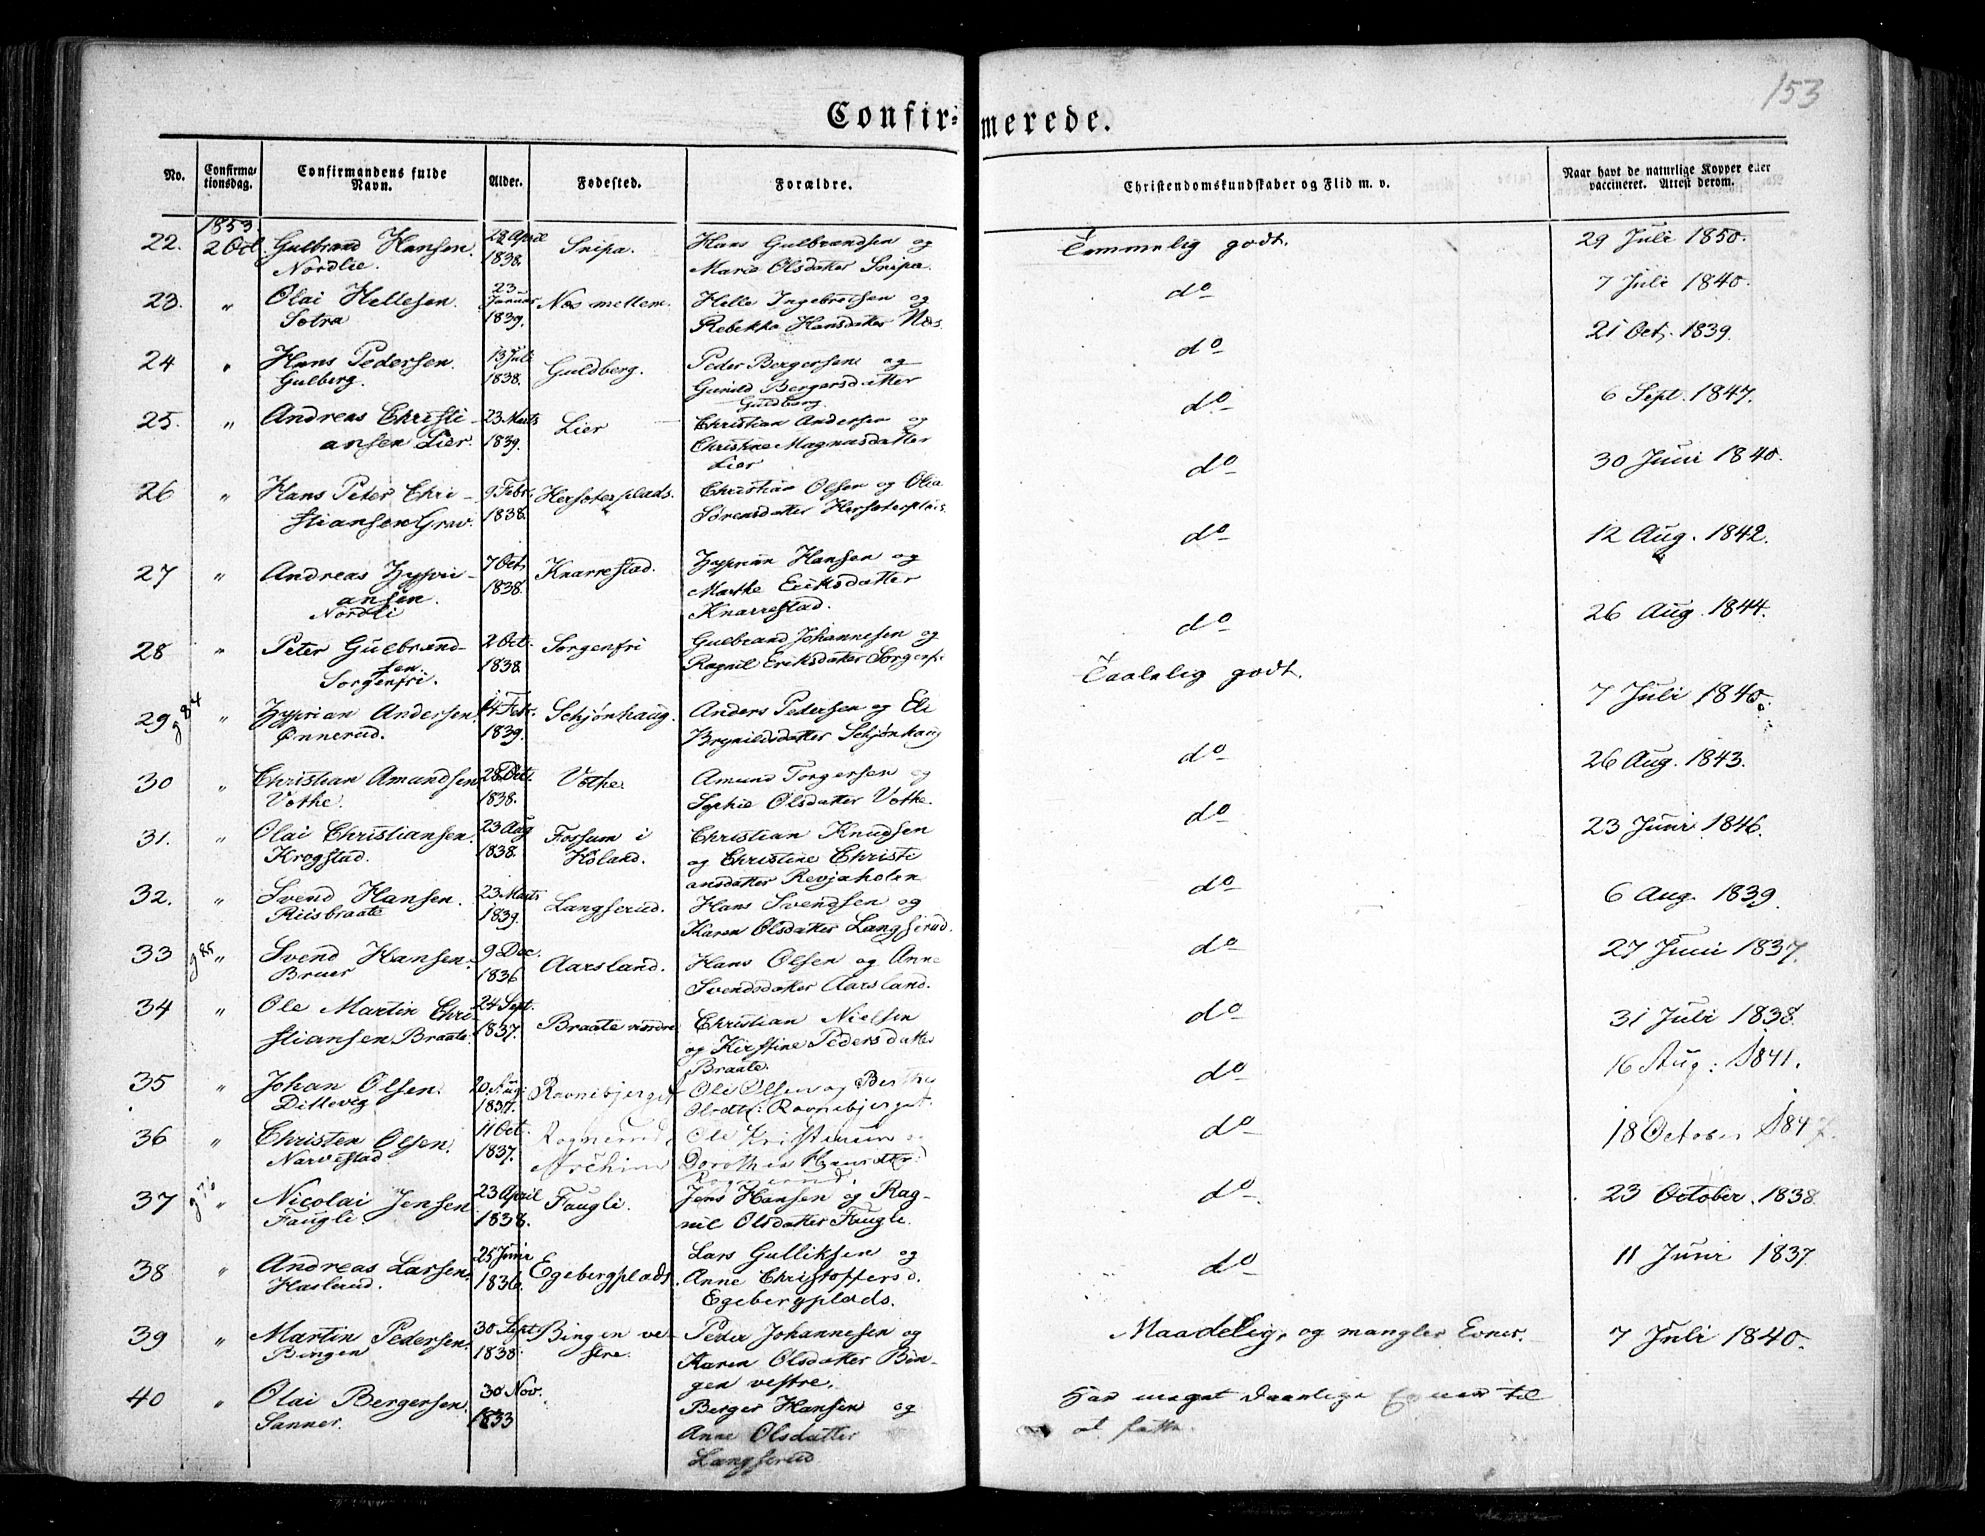 153
Confir=merede.
No. Confirma-tionsdag. Confirmandens fulde Navn. Alder. Fødested. Forældre. Christendomskundskaber og Flid m. v. Naar havt de naturlige Kopper eller vaccineret. Attest derom.
1853
22. 2 Oct. Gulbrand Hansen 23 April Snipa. Hans Gulbrandsen og Temmelig godt. 29 Juli 1850.
Nordlie. 1838. Marie Olsdatter Snipa.
23. " Olai Hellesen 23 Januar Næs mellem. Helle Ingebretsen og do 7 Juli 1840.
Sotra 1839. Rebekka Hansdatter Næs.
24 " Hans Pedersen. 13 Juli Guldberg. Peder Bergersen og do 21 Oct. 1839.
Gulberg. 1838. Gunild Bergersdatter
Guldberg.
25. " Andreas Christi- 23 Marts Lier Christian Andersen og do 6 Sept. 1847.
ansen Lier. 1839. Christine Magnusdatter
Lier
26 " Hans Peter Chri- 9 Febr. Hersæterplads. Christian Olsen og Olea do 30 Juni 1840.
stiansen Grav. 1838. Sørensdatter Hersæterplads.
27 " Andreas Zypri- 7 Oct. Knarrestad. Zyprian Hansen og do 12 Aug. 1842.
ansen. 1838. Marthe Eriksdatter
Nordli Knarrestad.
28 " Peter Gulbrand- 2 Oct. Sorgenfri Gulbrand Johannesen og do 26 Aug. 1844.
sen. 1838. Ragnil Eriksdatter Sorgenfri
Sorgenfri.
29 g 84 " Zyprian Andersen 14 Febr. Schjønhaug. Anders Pedersen og Eli Taalelig godt. 7 Juli 1840.
Ønnerud. 1839. Brynildsdatter Schjønhaug
30 " Christian Amundsen 28 Oct. Vothe. Amund Torgersen og do 26 Aug. 1843.
Vothe. 1838. Sophie Olsdatter Vothe.
31. " Olai Christiansen. 23 Aug Fossum i Christian Knudsen do 23 Juni 1846.
Krogstad. 1838. Høland. og Christine Christi
ansdatter Revjaholen
32. " Svend Hansen. 23 Marts Langserud. Hans Svendsen og do 6 Aug. 1839
Riisbraate 1839. Karen Olsdatter Langserud.
33 g 85 " Svend Hansen. 9 Dec. Aarsland. Hans Olsen og Anne do 27 Juni 1837.
Bruer 1836 Svendsdatter Aarsland.
34 " Ole Martin Chri 24 Sept. Braate nordre Christian Nielsen do 31 Juli 1838.
stiansen Braate. 1837. og Kirstine Pedersdatter
Braate.
35 " Johan Olsen. 20 Aug: Ravnebjerget Ole Olsen og Berthe do 16 Aug: 1841.
Ditlevig 1837. Olsdtr: Ravnebjerget.
36 " Christen Olsen. 11 Oct. Rognerud Ole Kristensen do 18 October 184
Narvestad. 1837. Dorothea
Rognerud.
37 g " Nicolai Jensen 23 April Faugli. Jens Hansen og Rag- do 23 October. 1838.
Faugli. 1838. nil Olsdatter Faugli.
38 " Andreas Larsen. 25 Juni Egebergplads. Lars Gulliksen og do 11 Juni 1837.
Haslerud. 1836. Anne Christoffersd.
Egebergplads.
39 " Martin Pedersen. 30 Sept. Bingen ve- Peder Johannesen og Maadelig, og mangler Evner. 7 Juli 1840.
Bingen 1838. stre. Karen Olsdatter Bin-
gen vestre.
40 " Olai Bergersen. 30 Nov. Berger Hansen og Har meget daarlige Evner til
Sanner. 1833 Anne Olsdatter at fatte.
Langserud